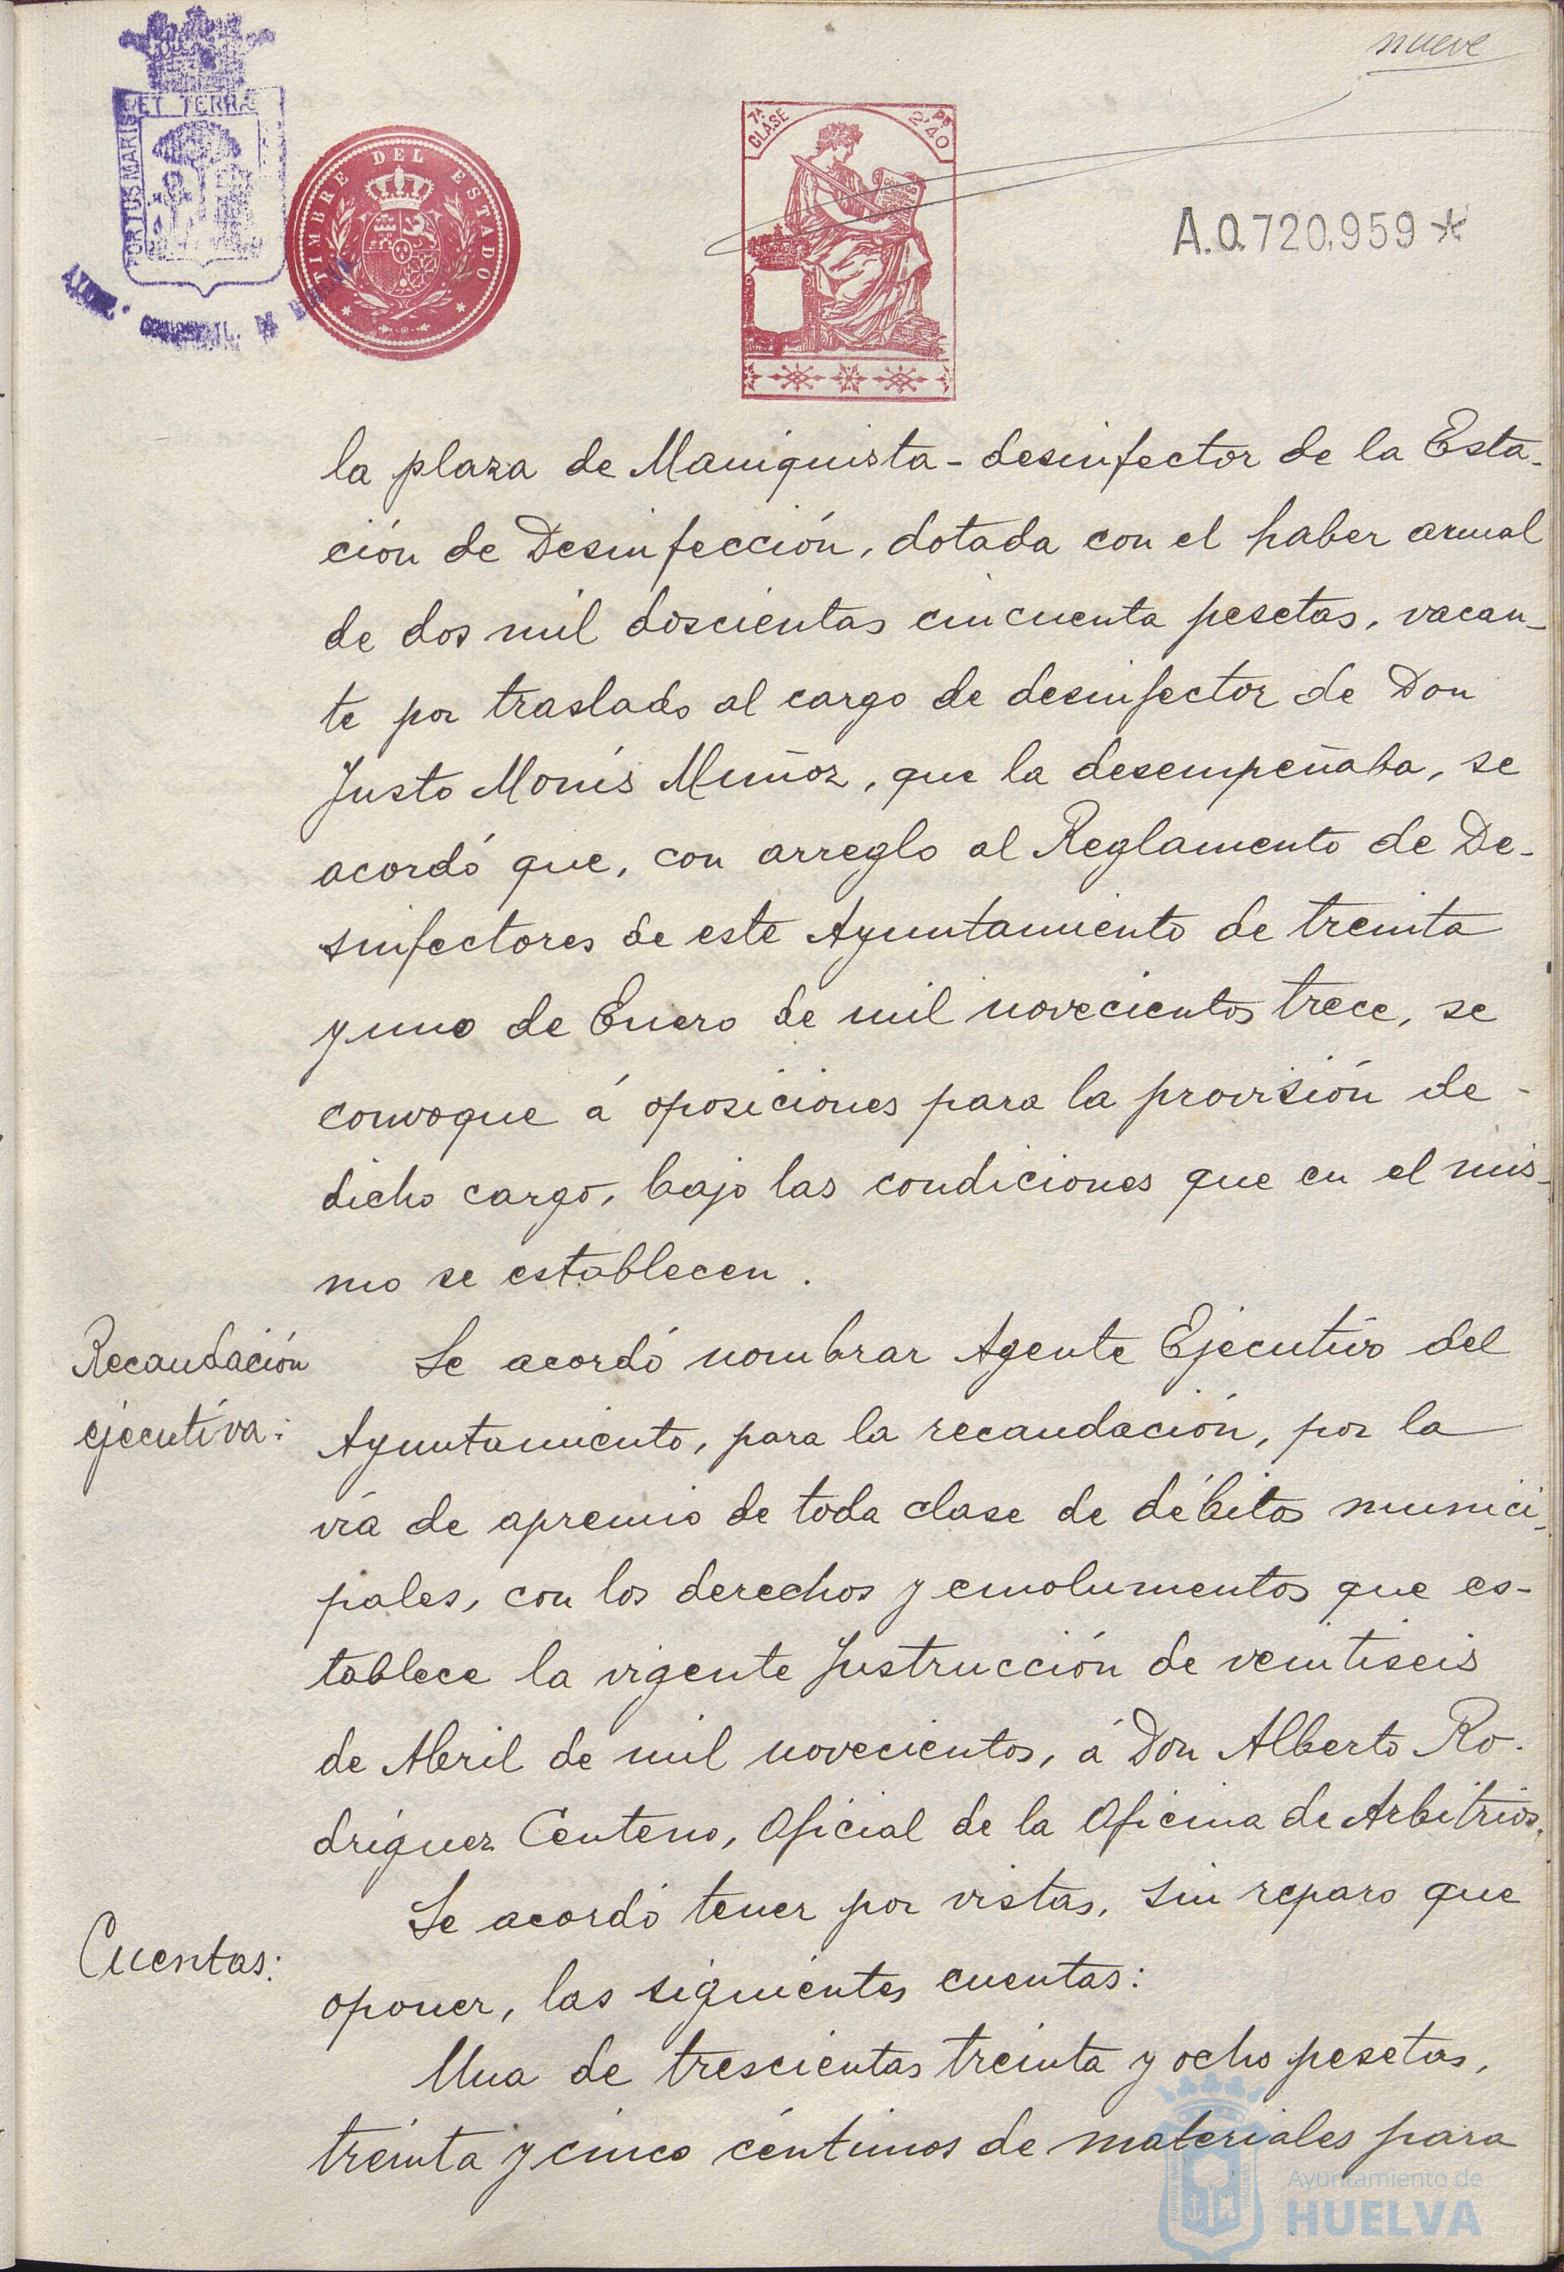 nueve
ET TERRÆ
PORTUS MARIS
TIMBRE DEL ESTADO
7ª CLASE
2'40
A.0.720,959*
la plaza de Maniquista-desinfector de la Esta-
ción de Desinfección, dotada con el haber anual
de dos mil doscientas cincuenta pesetas, vacan-
te por traslado al cargo de desinfector de Don
Justo Monís Muñoz, que la desempeñaba, se
acordó que, con arreglo al Reglamento de De-
sinfectores de este Ayuntamiento de treinta
y uno de Enero de mil novecientos trece, se
convoque á oposiciones para la provisión de-
dicho cargo, bajo las condiciones que en el mis-
mo se establecen.
Recaudación
ejecutiva:
Se acordó nombrar Agente Ejecutivo del
Ayuntamiento, para la recaudación, por la
vía de apremio de toda clase de débitos munici-
pales, con los derechos y emolumentos que es-
tablece la vigente Instrucción de veintiseis
de Abril de mil novecientos, á Don Alberto Ro-
dríguez Centeno, Oficial de la Oficina de Arbitrios.
Cuentas:
Se acordó tener por vistas, sin reparo que
oponer, las siguientes cuentas:
Una de trescientas treinta y ocho pesetas,
treinta y cinco céntimos de materiales para
Ayuntamiento de
HUELVA